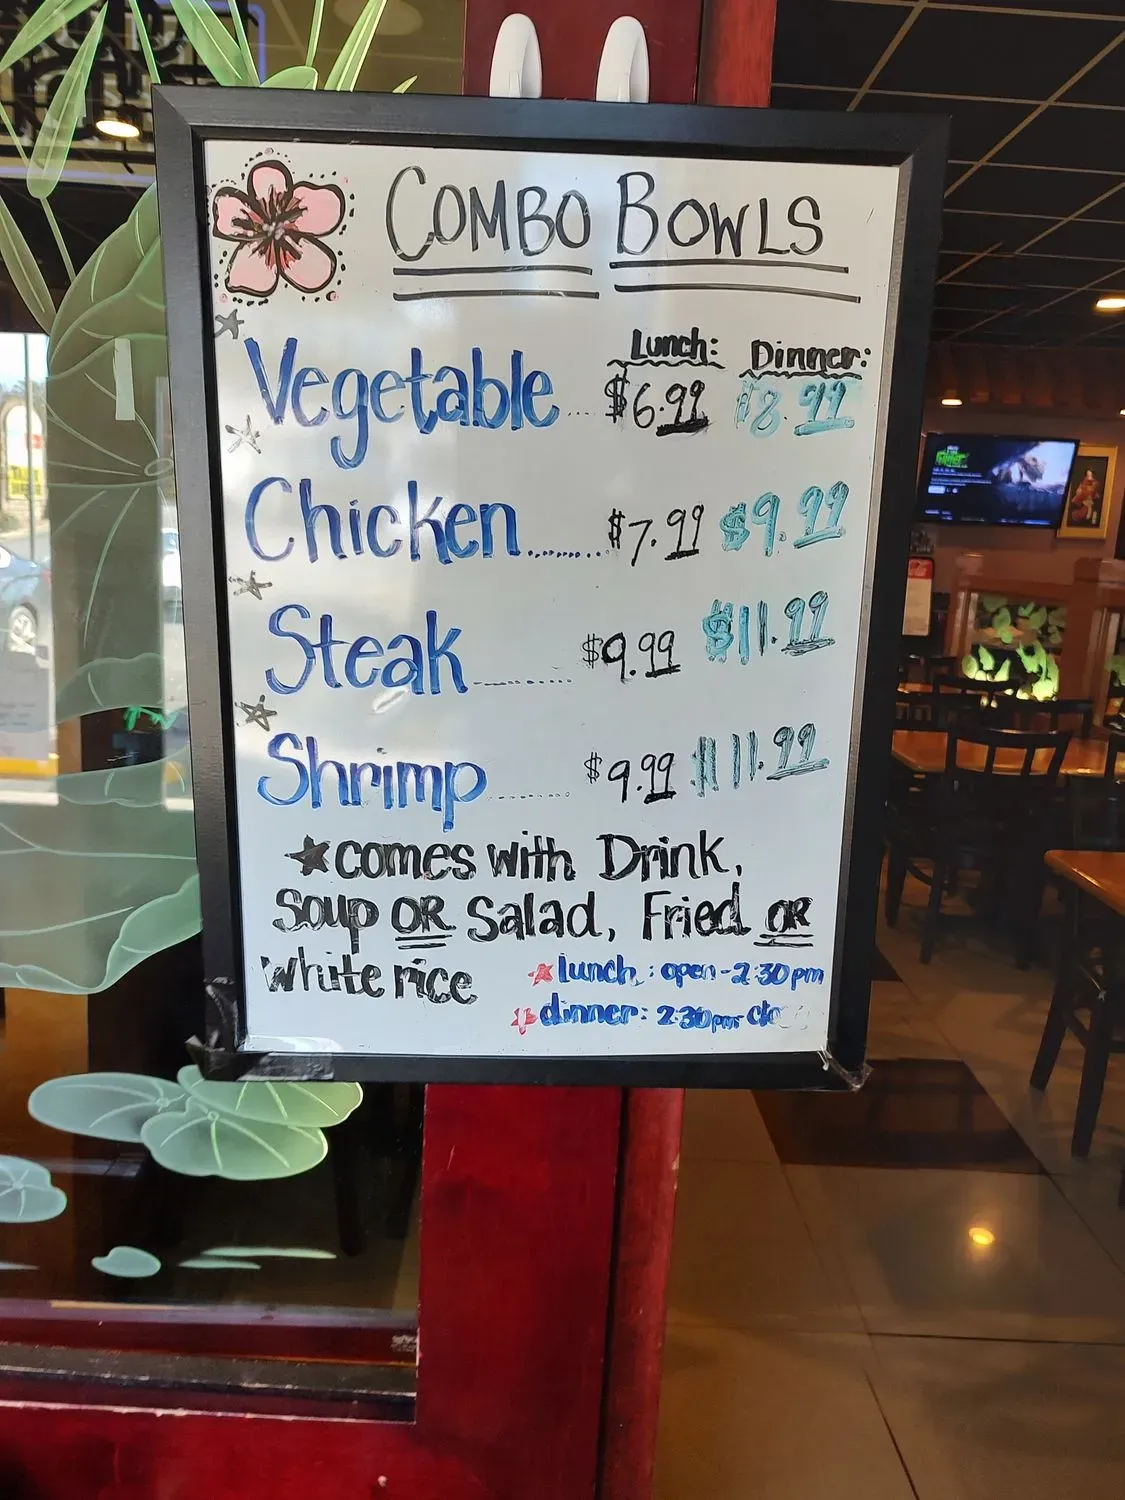 COMBO BOWLS
Lunch: Dinner:
Vegetable ..... $6.99 $8.99
Chicken ......... $7.99 $9.99
Steak ............ $9.99 $11.99
Shrimp ............ $9.99 $11.99
★comes with Drink,
Soup OR Salad, Fried OR
white rice
★lunch: open-2:30pm
★dinner: 2:30pm-clo